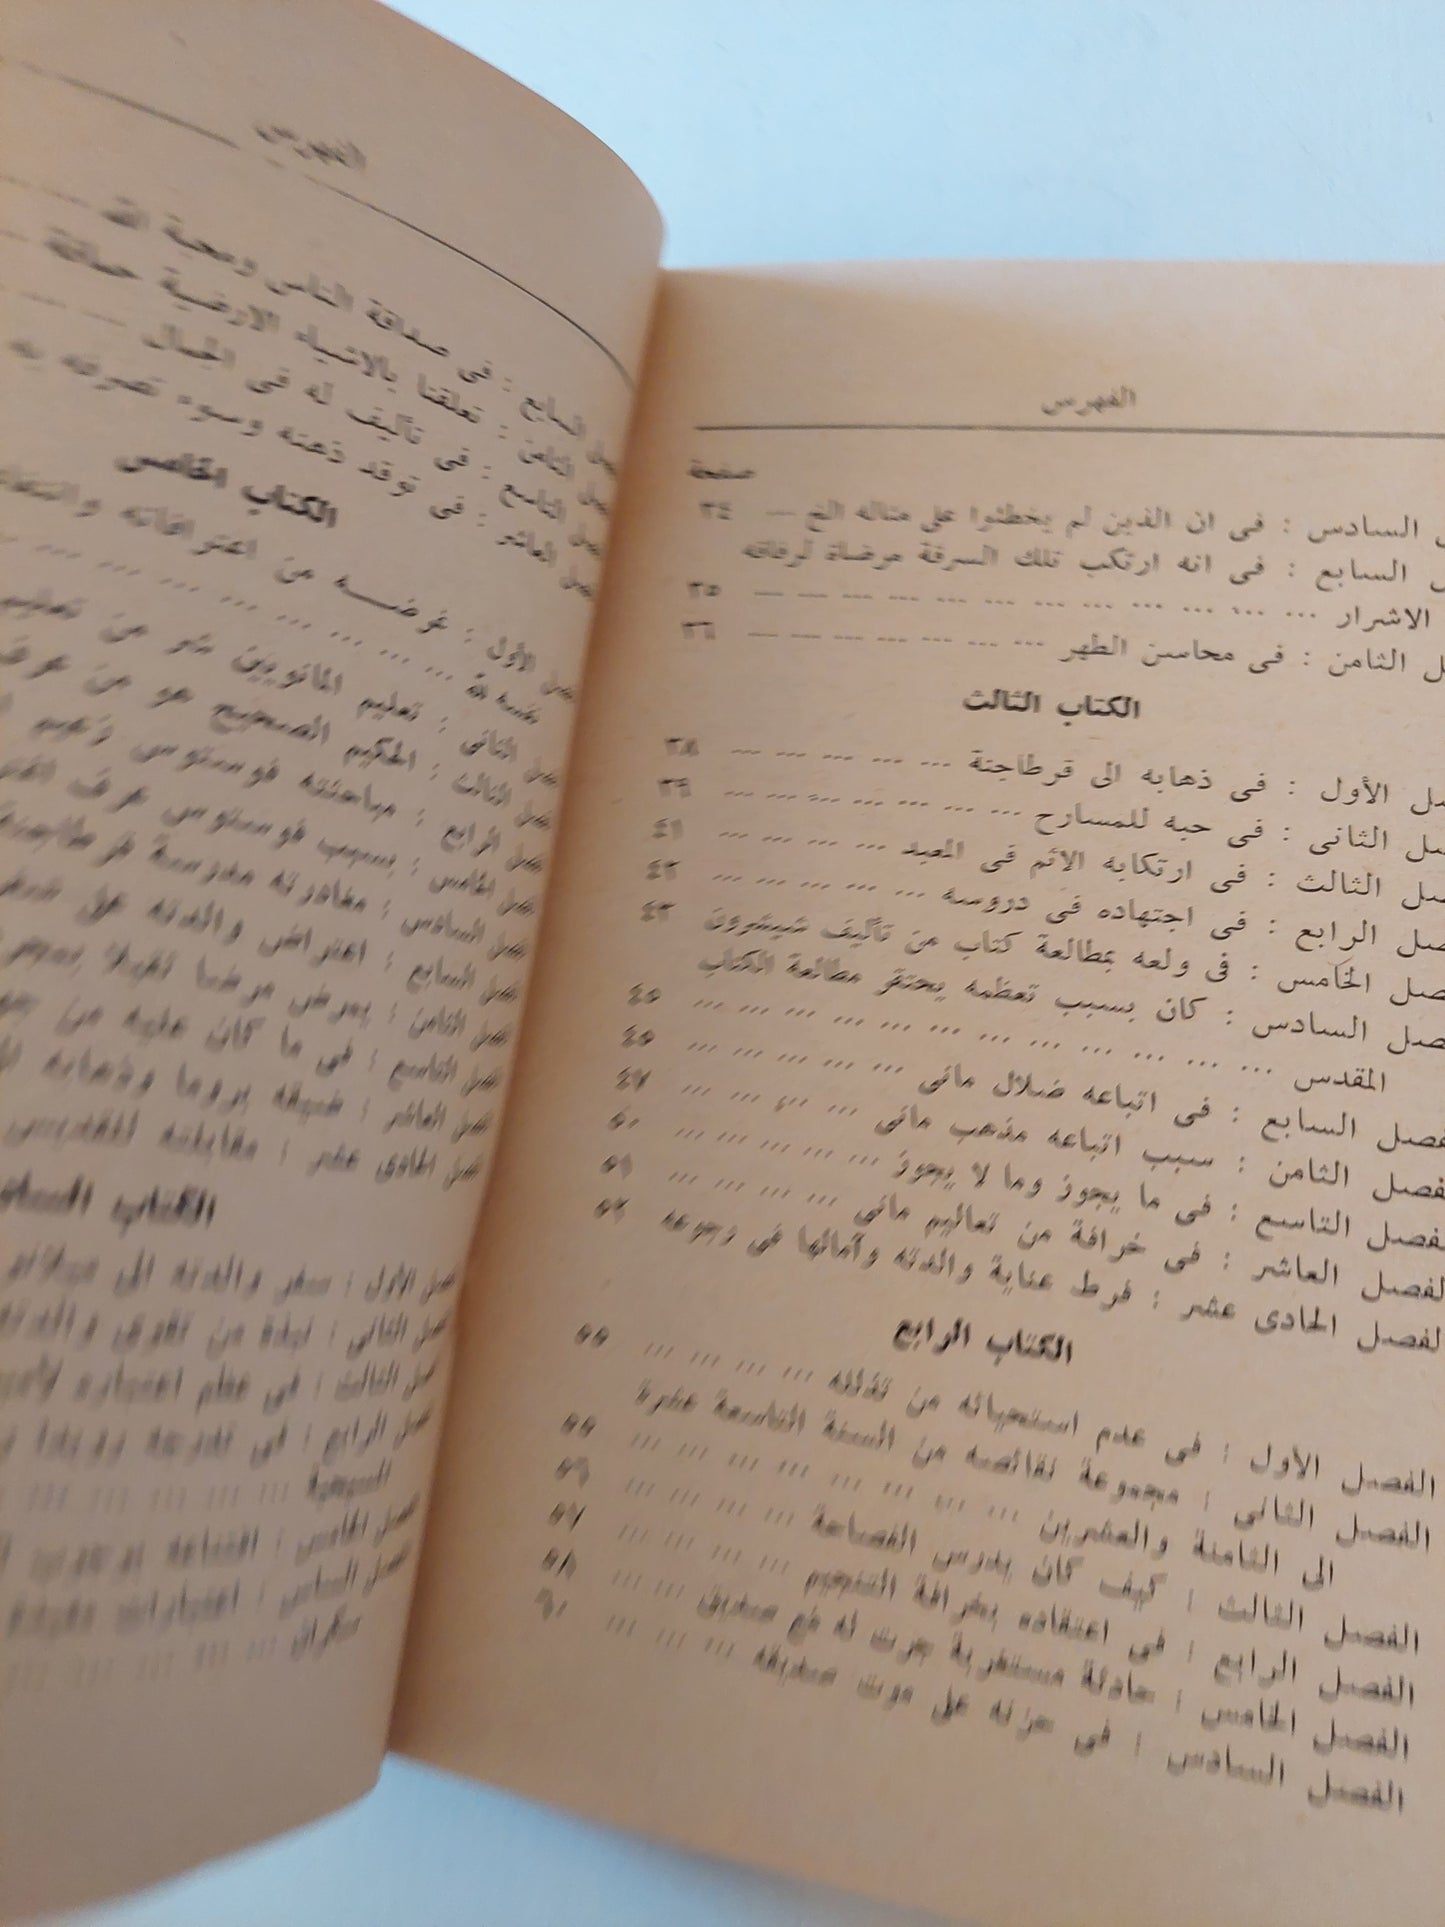 الفهرس
صفحة
السادس : فى ان الذين لم يخطئوا على مثاله الخ ... ٣٤
السابع : فى انه ارتكب تلك السرقة مرضاة لرفاقه
الاشرار ... ... ... ... ... ... ... ... ... ... ... ٣٥
الثامن : فى محاسن الطهر ... ... ... ... ... ... ... ٣٦
الكتاب الثالث
الأول : فى ذهابه الى قرطاجنة ... ... ... ... ... ٣٨
الثانى : فى حبه للمسارح ... ... ... ... ... ... ... ٣٩
الثالث : فى ارتكابه الاثم فى المعبد ... ... ... ... ... ٤١
الرابع : فى اجتهاده فى دروسه ... ... ... ... ... ... ٤٢
الخامس : فى ولعه بمطالعة كتاب من تآليف شيشرون ٤٣
السادس : كان بسبب تعظمه يحتقر مطالعة الكتاب
المقدس ... ... ... ... ... ... ... ... ... ... ... ... ٤٥
الفصل السابع : فى اتباعه ضلال مانى ... ... ... ... ... ٤٥
الفصل الثامن : سبب اتباعه مذهب مانى ... ... ... ... ... ٤٧
الفصل التاسع : فى ما يجوز وما لا يجوز ... ... ... ... ... ٥٠
الفصل العاشر : فى خرافة من تعاليم مانى ... ... ... ... ٥١
الفصل الحادى عشر : فرط عناية والدته وآمالها فى رجوعه ٥٢
الكتاب الرابع
الفصل الأول : فى عدم استحيائه من تذلله ... ... ... ... ٥٥
الفصل الثانى : مجموعة نقائصه من السنة التاسعة عشرة
الى الثامنة والعشرين ... ... ... ... ... ... ... ... ٥٥
الفصل الثالث : كيف كان يدرس الفصاحة ... ... ... ... ... ٥٦
الفصل الرابع : فى اعتقاده بخرافة التنجيم ... ... ... ... ٥٧
الفصل الخامس : حادثة مستغربة جرت له مع صديق ... ... ٥٨
الفصل السادس : فى حزنه على موت صديقه ... ... ... ... ٦٠
الفهرس
السابع : فى صداقة الناس ومحبة الله
الثامن : تعلقنا بالاشياء الارضية حماقة
التاسع : فى تآليف له فى الجمال
العاشر : فى توقد ذهنه وسوء تصرفه به
الكتاب الخامس
الأول : غرضه من اعترافاته
نفسه لله
الثانى : تعليم المانويين
الثالث : الحكيم الصحيح هو من عرف
الرابع : مباحثته فوستوس زعيم
الخامس : بسبب فوستوس عرف
السادس : مغادرته مدرسة قرطاجنة
السابع : اعتراض والدته على سفره
الثامن : يمرض مرضا ثقيلا
التاسع : فى ما كان عليه من
العاشر : ضيقه بروما وذهابه
الحادى عشر : مقابلته للقديس
الكتاب
الأول : سفر والدته الى ميلانو
الثانى : نبذة من تقوى والدته
الفصل الثالث : فى عظم اعتباره
الفصل الرابع : فى تدرجه رويدا
المسيحية
الفصل الخامس : اقتناعه
الفصل السادس : اعتبارات مفيدة
سكران